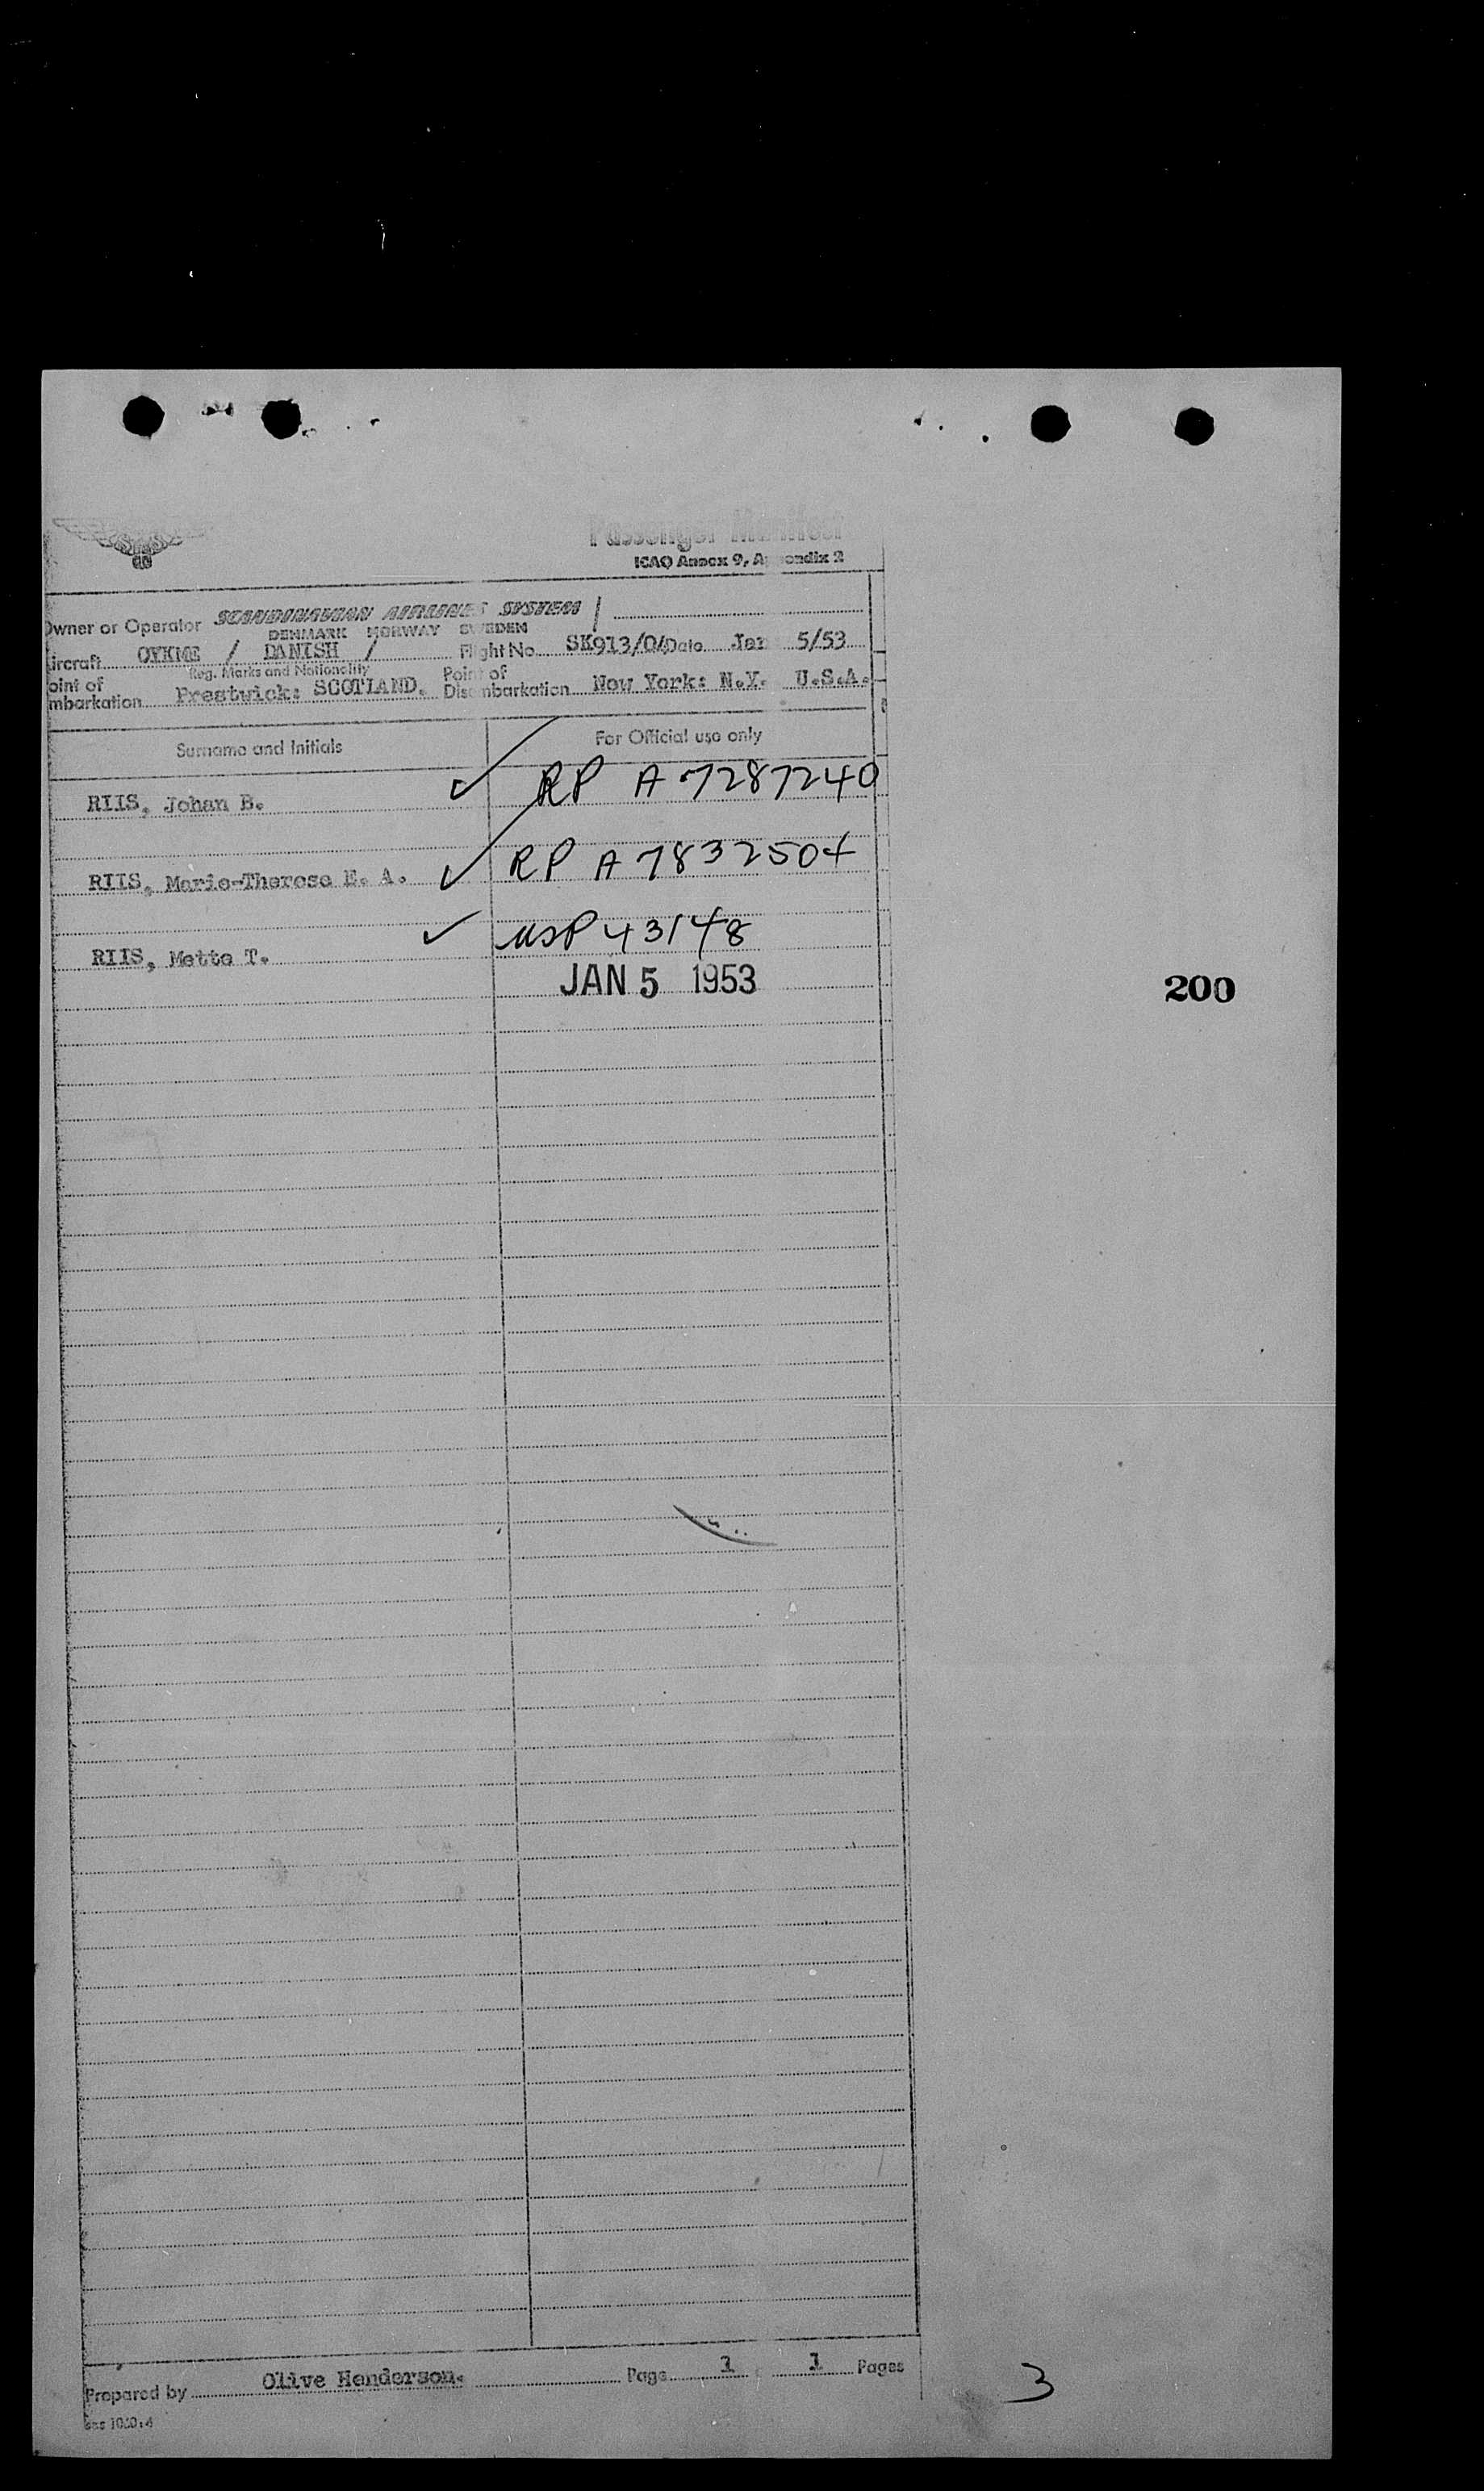 Passenger Manifest
ICAO Annex 9, Appendix 2
Owner or Operator SCANDINAVIAN AIRLINES SYSTEM
DENMARK NORWAY SWEDEN
Aircraft OYKME / DANISH / Flight No. SK913/04 Date Jan 5/53
Reg. Marks and Nationality
Point of Embarkation Prestwick: SCOTLAND. Point of Disembarkation New York: N.Y. U.S.A.
Surname and Initials For Official use only
RIIS, Johan B. ✓ RP A 7287240
RIIS, Marie-Therese E. A. ✓ RP A 7832504
RIIS, Mette T. ✓ USP 43148
JAN 5 1953
200
Prepared by Olive Henderson. Page 1 1 Pages
3